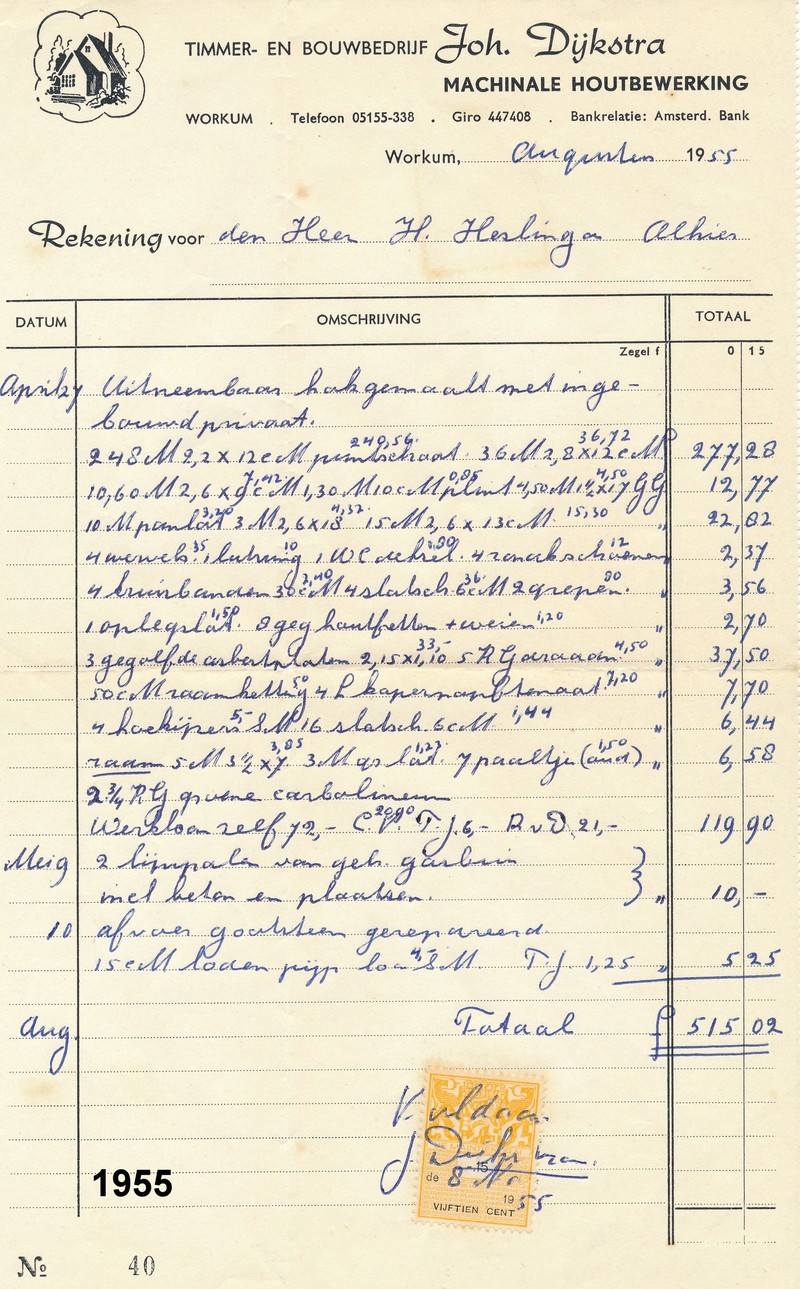 TIMMER- EN BOUWBEDRIJF Joh. Dijkstra
MACHINALE HOUTBEWERKING
WORKUM . Telefoon 05155-338 . Giro 447408 . Bankrelatie: Amsterd. Bank
Workum, Augustus 1955
Rekening voor den Heer H. Heslinga Alhier
DATUM OMSCHRIJVING TOTAAL
Zegel f 0 15
April 27 Uitneembaar hok gemaakt met inge-
bouwd privaat.
240,56 36,72
248 M 2,2 x 12 cM 36 M 2,8 x 12 cM f 277,28
7,42 0,85 4,50
10,60 M 2,6 x 9 cM 1,30 M 10 cM plint 4,50 M 1½ x 17 GG 12,77
3,20 4,32 15,30
10 M panlat 3 M 2,6 x 18 15 M 2,6 x 13 cM " 22,82
35 10 12
4 wervels 1 1 WC deksel 4 " 2,37
2,40 36 80
4 kruinbanden 30 cM 4 slotsch. 6 cM 2 grepen. " 3,56
1,50 1,20
1 opleglat. 8 geg houtfretten + " 2,70
33,- 4,50
3 gegolfde asbestplaten 2,15 x 1,10 5 KG draad " 37,50
50 7,20
50 cM raamketting 4 L " 7,70
5,- 1,44
4 hoekijzers 8 M 16 slotsch. 6 cM " 6,44
3,85 1,23 1,50
raam 5 M 3½ x 7 3 M gs lat. 7 paaltje (oud) " 6,58
2¾ KG groene carbolineum
Werkloon zelf 72,- C.V. 20,90 T.J. 6,- R v D 21,- 119 90
Mei 9 2 lijnpalen van geb. gasbuis
incl beton en plaatsen. " 10,-
10 afvoer gootsteen gerepareerd
15 cM loden pijp loon 4,- S M. T.J. 1,25 " 5 25
Aug. Totaal f 515 02
Voldaan
J Dijkstra
15
de 8 No
1955
VIJFTIEN CENT
1955
No 40